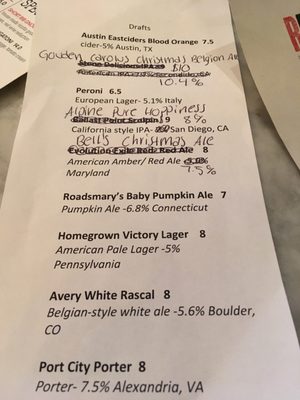 Drafts
Austin Eastciders Blood Orange 7.5
cider-5% Austin, TX
Gouden Carolus Christmas Belgian Ale
Stone Delicious IPA $10
10.4%
Peroni 6.5
European Lager- 5.1% Italy
Alpine Pure Hoppiness
Ballast Point Sculpin 9 8%
California style IPA- San Diego, CA
Bell's Christmas Ale
Evolution Exile Red Ale 8
American Amber/ Red Ale
Maryland 7.5%
Roadsmary's Baby Pumpkin Ale 7
Pumpkin Ale -6.8% Connecticut
Homegrown Victory Lager 8
American Pale Lager -5%
Pennsylvania
Avery White Rascal 8
Belgian-style white ale -5.6% Boulder,
CO
Port City Porter 8
Porter- 7.5% Alexandria, VA